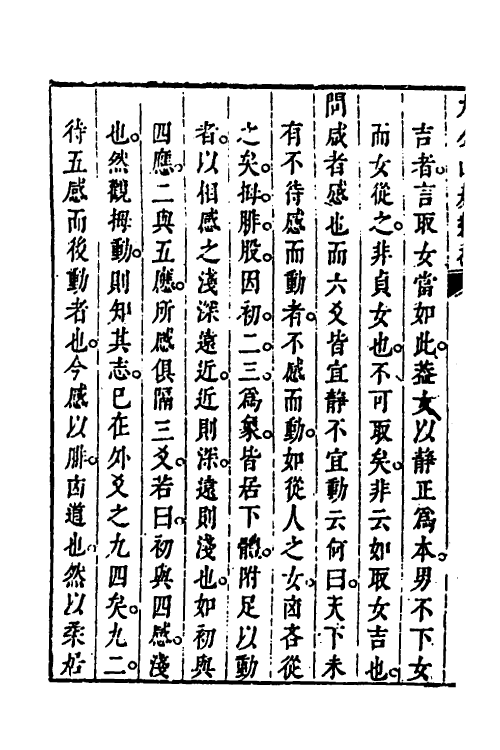 吉者。言取女當如此。葢女以靜正爲本。男不下女
而女從之。非貞女也。不可取矣。非云如取女吉也。
問咸者感也。而六爻皆宜静不宜動云何曰。天下未
有不待感而動者。不感而動。如從人之女。凶吝從
之矣。拇腓股。因初二三爲象。皆居下體。附足以動
者。以相感之淺深遠近。近則深。遠則淺也。如初與
四應。二與五應。所感俱隔三爻。若曰。初與四感。淺
也。然觀拇動。則知其志。已在外爻之九四矣。九二。
待五感而後動者也。今感以腓。凶道也。然以柔居